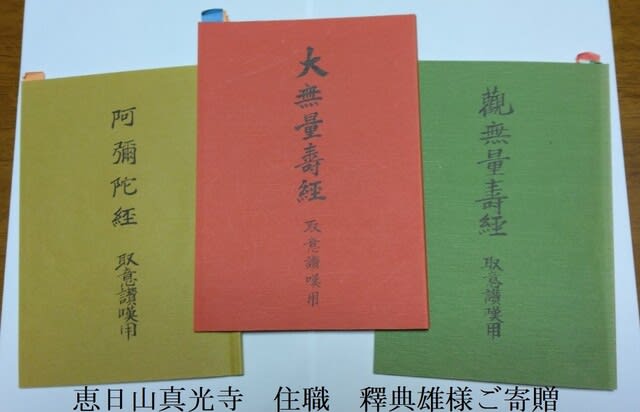 阿彌陀経
取意讃嘆用
大無量壽経
取意讃嘆用
觀無量壽経
取意讃嘆用
恵日山真光寺　住職　釋典雄様ご寄贈